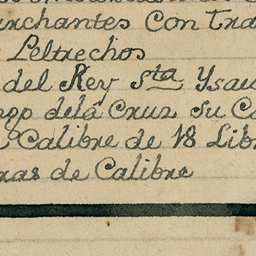 archantes Con Tra
Peltrechos
del Rey Sta Ysau
ngo dela Cruz su Ca
Calibre de 18 Lib
ras de Calibre